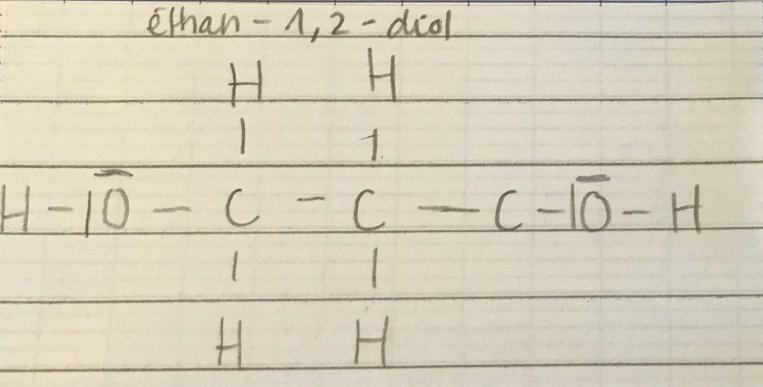 éthan-1,2-diol
H H
| |
H-|O̅-C-C-C-|O̅-H
| |
H H